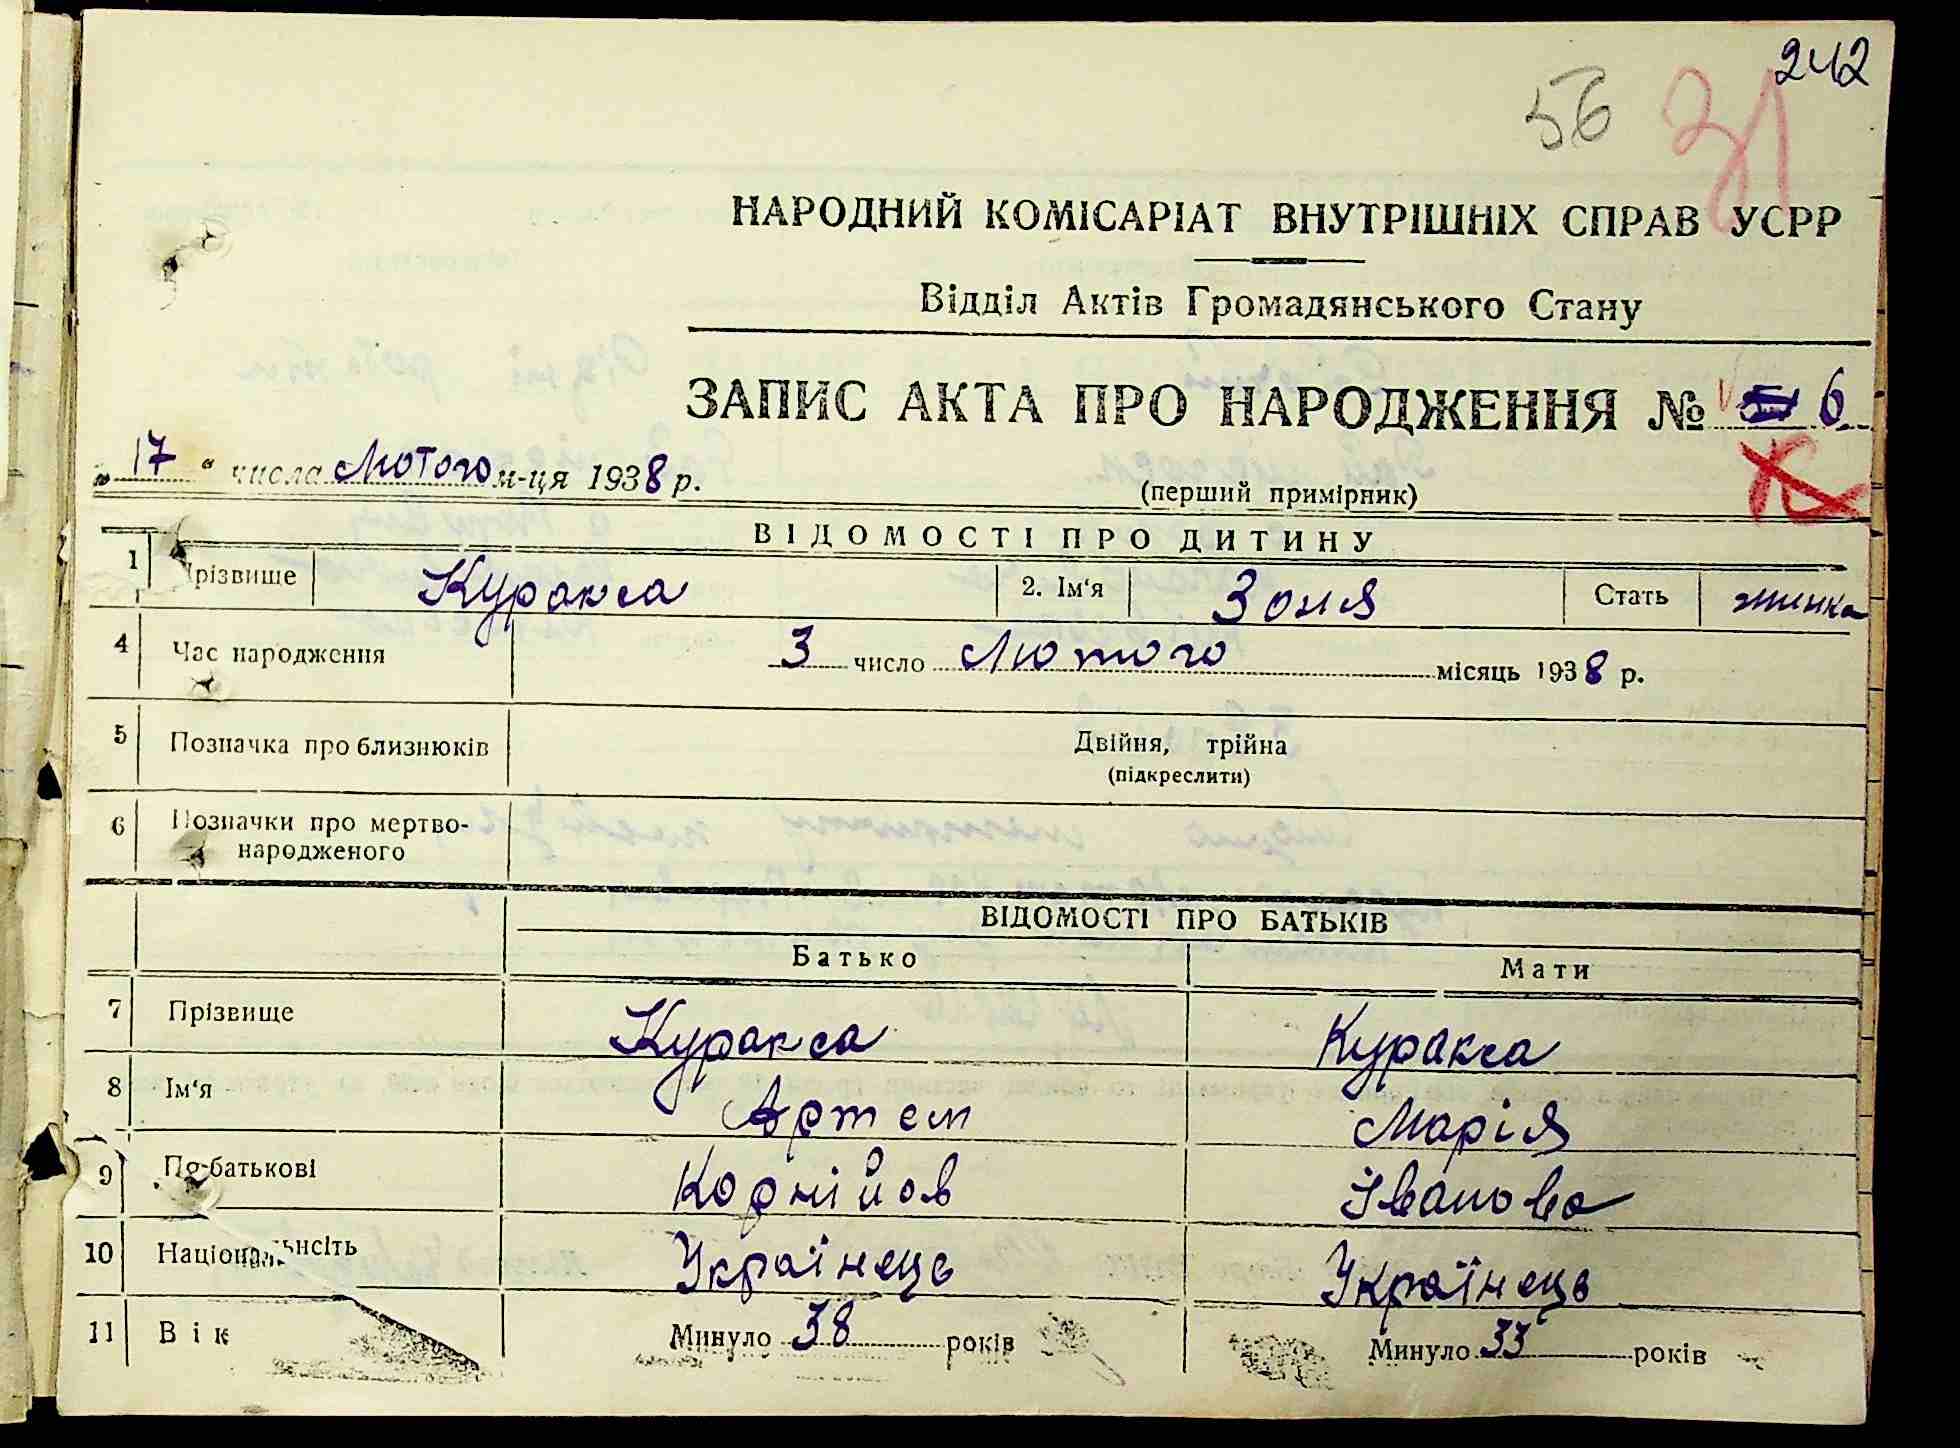 242
56 31
НАРОДНИЙ КОМІСАРІАТ ВНУТРІШНІХ СПРАВ УСРР
Відділ Актів Громадянського Стану
ЗАПИС АКТА ПРО НАРОДЖЕННЯ № 6
„17“ числа Лютого м-ця 1938 р.
(перший примірник)
ВІДОМОСТІ ПРО ДИТИНУ
1 Прізвище Куракса 2. Ім‘я Зоня Стать жинка
4 Час народження 3 число Лютого місяць 1938 р.
5 Позначка про близнюків Двійня, трійна
(підкреслити)
6 Позначки про мертво-
народженого
ВІДОМОСТІ ПРО БАТЬКІВ
Батько Мати
7 Прізвище Куракса Куракса
8 Ім‘я Артем Марія
9 По-батькові Корнійов Іванова
10 Національнсіть Українець Українець
11 Вік Минуло 38 років Минуло 33 років